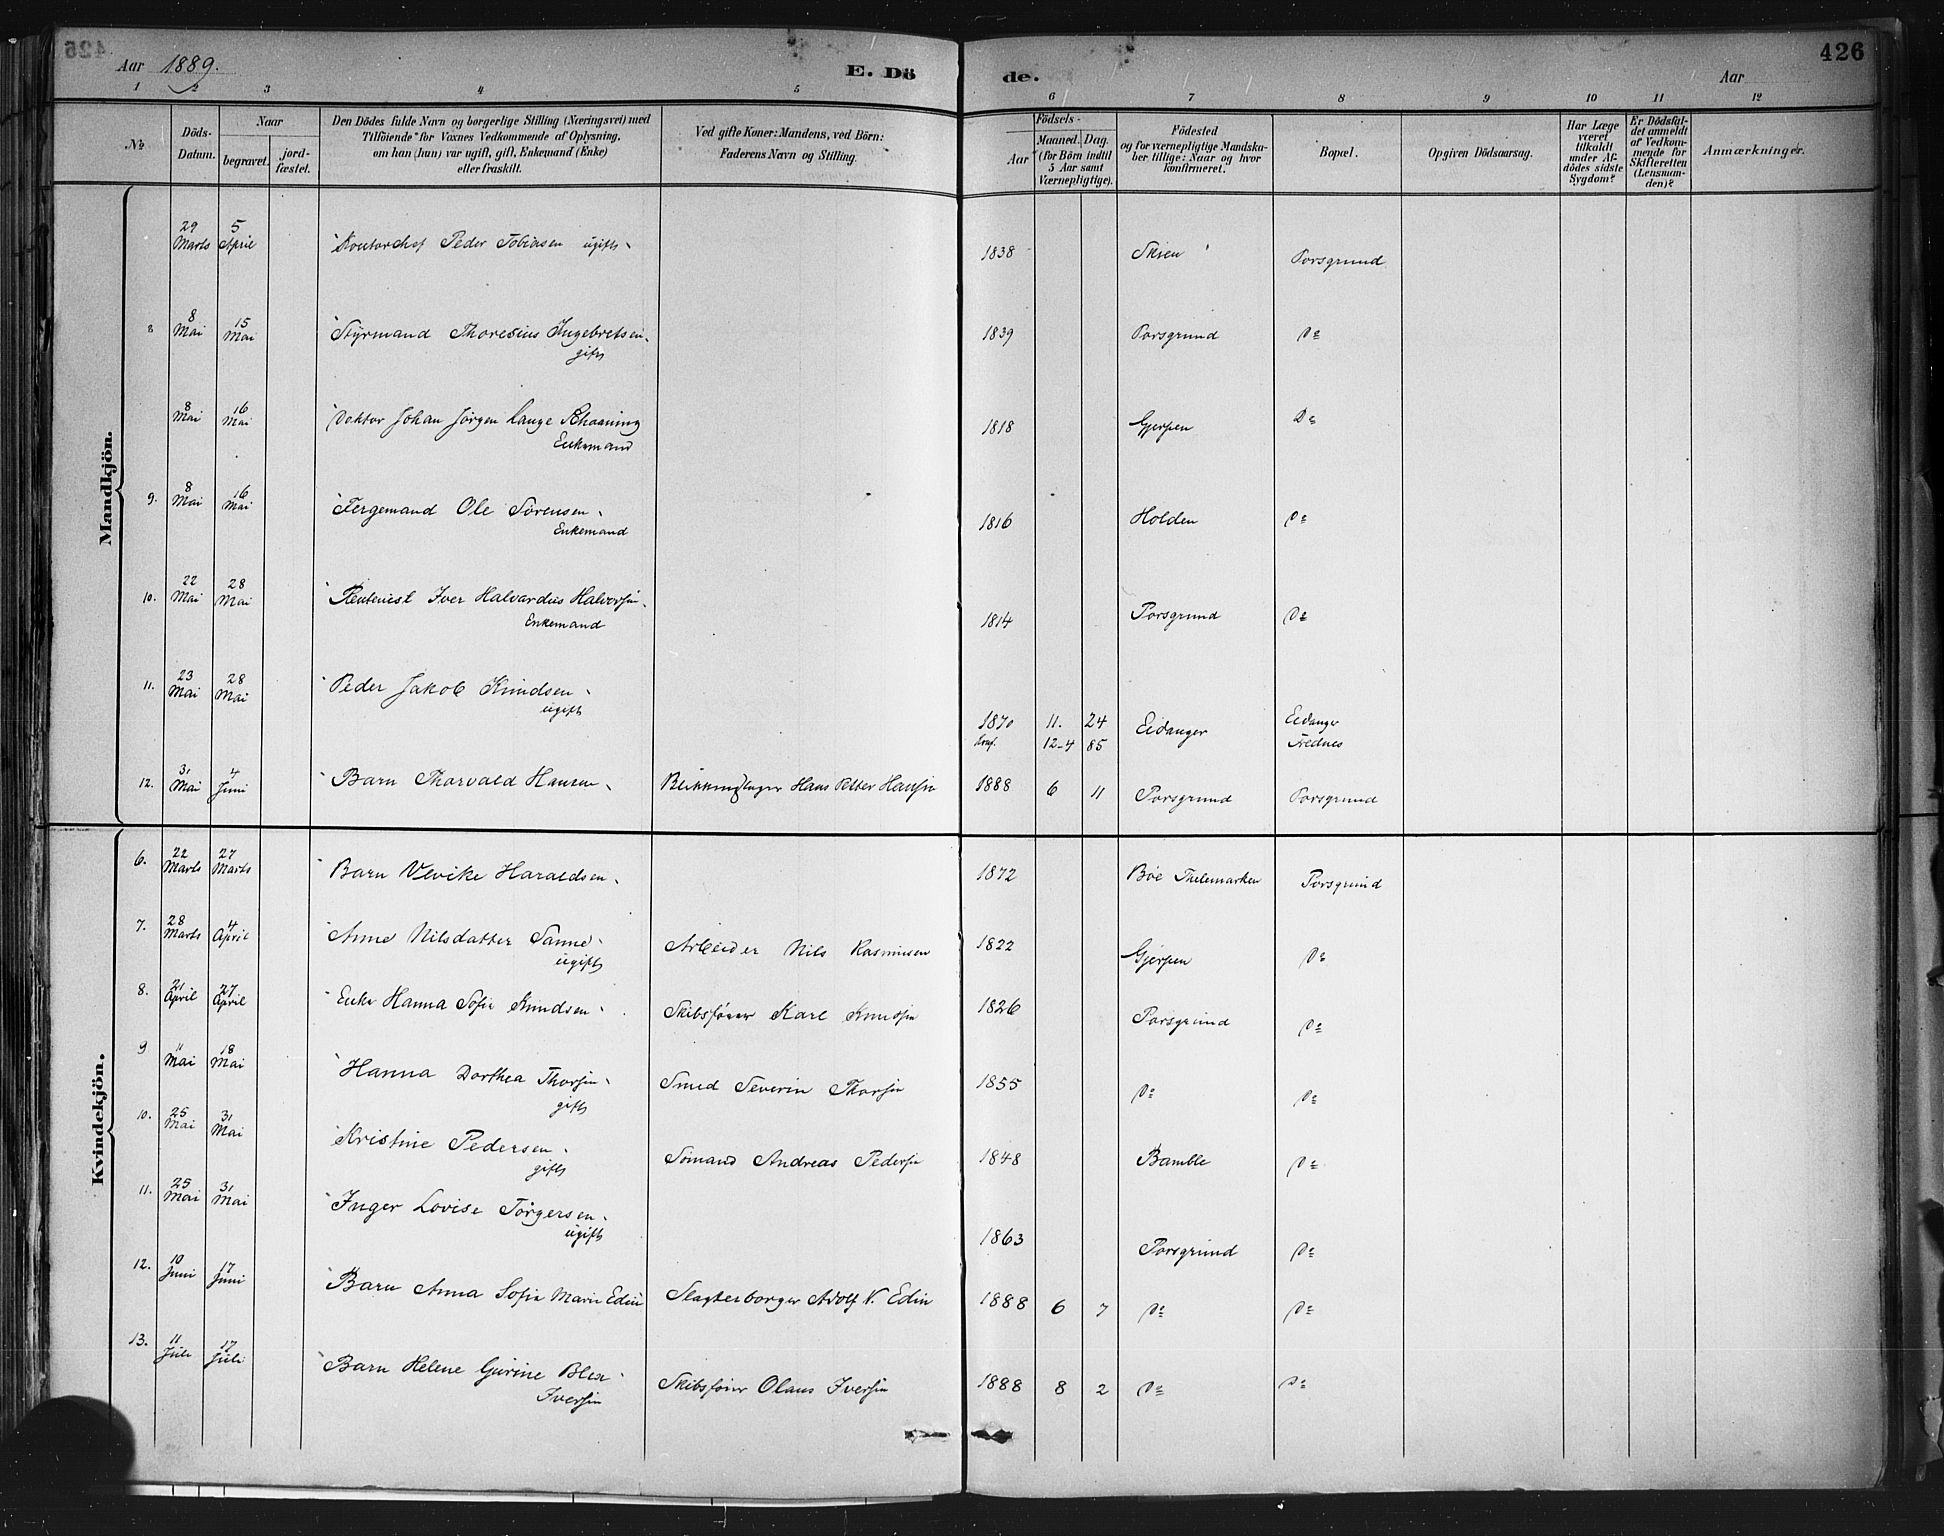 426
Aar 1889.
E. Dö de.
Aar
1 2 3 4 5 6 7 8 9 10 11 12
№
Döds-Datum.
Naar
begravet.
jord-fæstet.
Den Dödes fulde Navn og borgerlige Stilling (Næringsvei) med
Tilföiende for Voxnes Vedkommende af Oplysning,
om han (hun) var ugift, gift, Enkemand (Enke)
eller fraskilt.
Ved gifte Koner: Mandens, ved Börn:
Faderens Navn og Stilling.
Födsels-
Aar
Maaned. Dag.
(for Börn indtil
5 Aar samt
Værnepligtige).
Födested
og for værnepligtige Mandska-
ber tillige: Naar og hvor
konfirmeret.
Bopæl.
Opgiven Dödsaarsag.
Har Læge
været
tilkaldt
under Af-
dödes sidste
Sygdom?
Er Dödsfal-
det anmeldt
af Vedkom-
mende for
Skifteretten
(Lensman-
den)?
Anmærkninger.
Mandkjön.
29 Marts 5 April Kontorchef Peder Tobiasen ugift 1838 Skien Porsgrund
8 8 Mai 15 Mai Styrmand Thoresius Ingebretsen 1839 Porsgrund Do
gift
8 Mai 16 Mai Doktor Johan Jörgen Lange Schaaning 1818 Gjerpen Do
Enkemand
9. 8 Mai 16 Mai Fergemand Ole Sörensen 1816 Holden Do
Enkemand
10. 22 Mai 28 Mai Rentenist Iver Halvardus Halvorsen 1814 Porsgrund Do
Enkemand
11. 23 Mai 28 Mai Peder Jakob Knudsen
ugift
1870 11. 24 Eidanger Eidanger
Konf. 12-4 85 Frednes
12. 31 Mai 4 Juni Barn Thorvald Hansen Blikkenslager Hans Petter Hansen 1888 6 11 Porsgrund Porsgrund
Kvindekjön.
6. 22 Marts 27 Marts Barn Ulvike Haraldsen 1872 Böe Thelemarken Porsgrund
7. 28 Marts 4 April Anne Nilsdatter Sanne Arbeider Nils Rasmusen 1822 Gjerpen Do
ugift
8. 21 April 27 April Enke Hanna Sofie Knudsen Skibsförer Karl Knudsen 1826 Porsgrund Do
9 11 Mai 18 Mai Hanna Dorthea Thorsen Smed Severin Thorsen 1855 Do Do
gift
10. 25 Mai 31 Mai Kristine Pedersen Sömand Andreas Pedersen 1848 Bamble Do
gift
11. 25 Mai 31 Mai Inger Lovise Törgersen 1863 Porsgrund Do
ugift
12. 10 Juni 17 Juni Barn Anna Sofie Marie Edin Slagterborger Adolf V. Edin 1888 6 7 Do Do
13. 11 Juli 17 Juli Barn Helene Gurine Blea Skibsförer Olaus Iversen 1888 8 2 Do Do
Iversen